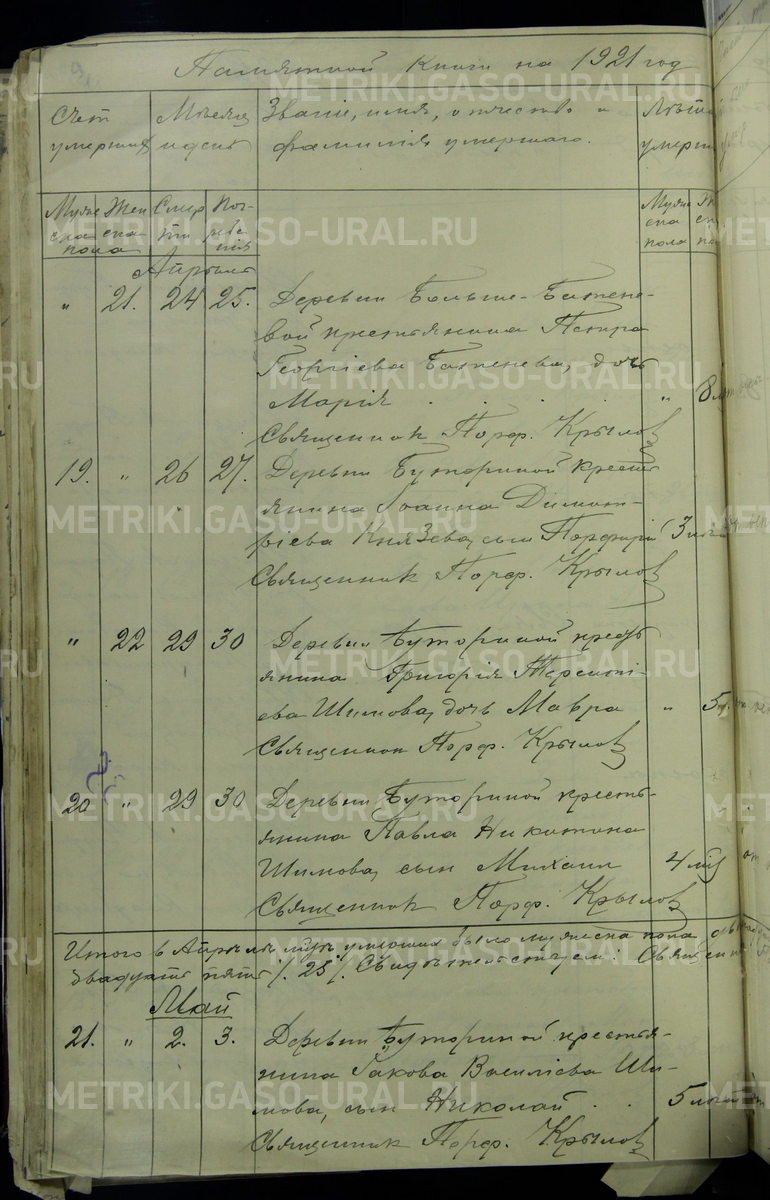 Памятной Книги на 1921 год
Счет умерших
Месяц и день
Званіе, имя, отчество и фамилія умершаго.
Лѣта умерш
Мужеска пола
Женска пола
Смерти
Погребенія
Мужеска пола
Апрель
" 21. 24 25. Деревни Больше-Баженовой крестьянина Петра
Георгіева Баженева, дочь
Марія . . . . " 8 лѣт
Священник Порф. Крылов
19. " 26 27. Деревни Буториной крестьянина Іоанна Димит-
ріева Князева, сын Порфирій 3 лѣт
Священник Порф. Крылов
" 22 29 30 Деревни Буториной кресть
янина Григорія Терентi-
ева Шимова, дочь Мавра " 5
Священник Порф. Крылов
20 " 29 30 Деревни Буториной кресть-
янина Павла Никитина
Шимова, сын Михаил 4 лѣт
Священник Порф. Крылов
Итого в Апрѣлѣ мѣс умерших было мужеска пола
двадцать пять /25/.
Май
21. " 2. 3. Деревни Буториной крестья-
нина Іакова Василіева Ши-
мова, сын Николай . . 5
Священник Порф. Крылов
METRIKI.GASO-URAL.RU